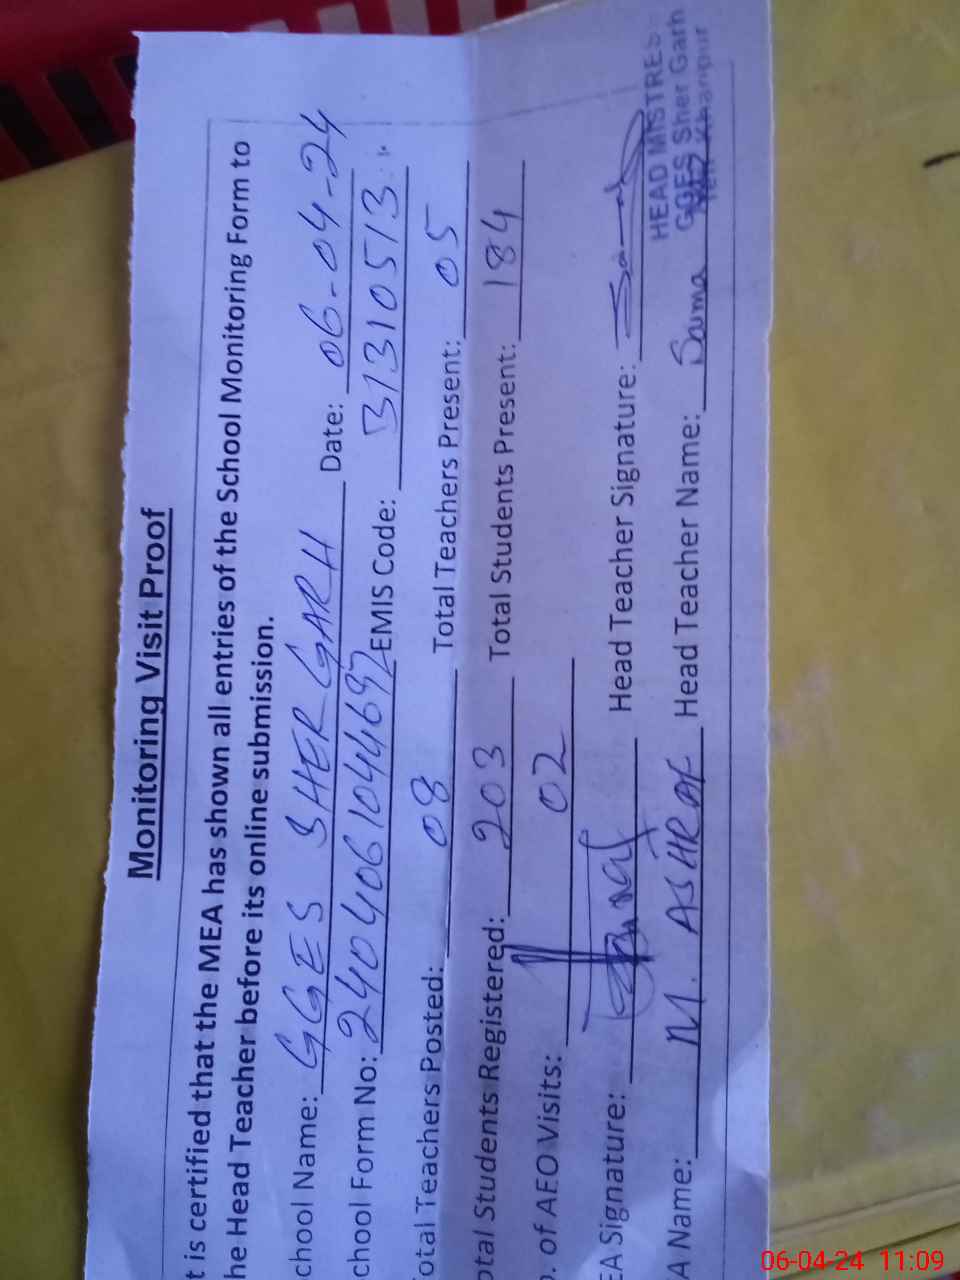 Monitoring Visit Proof
t is certified that the MEA has shown all entries of the School Monitoring Form to
he Head Teacher before its online submission.
chool Name: GGES SHER GARH Date: 06-04-24
chool Form No: 2404061044697 EMIS Code: 31310513
otal Teachers Posted: 08 Total Teachers Present: 05
otal Students Registered: 203 Total Students Present: 184
o. of AEO Visits: 02
EA Signature: Head Teacher Signature:
HEAD MISTRES
GGES Sher Garh
Khanpur
A Name: M. ASHRAF Head Teacher Name:
06-04-24 11:09